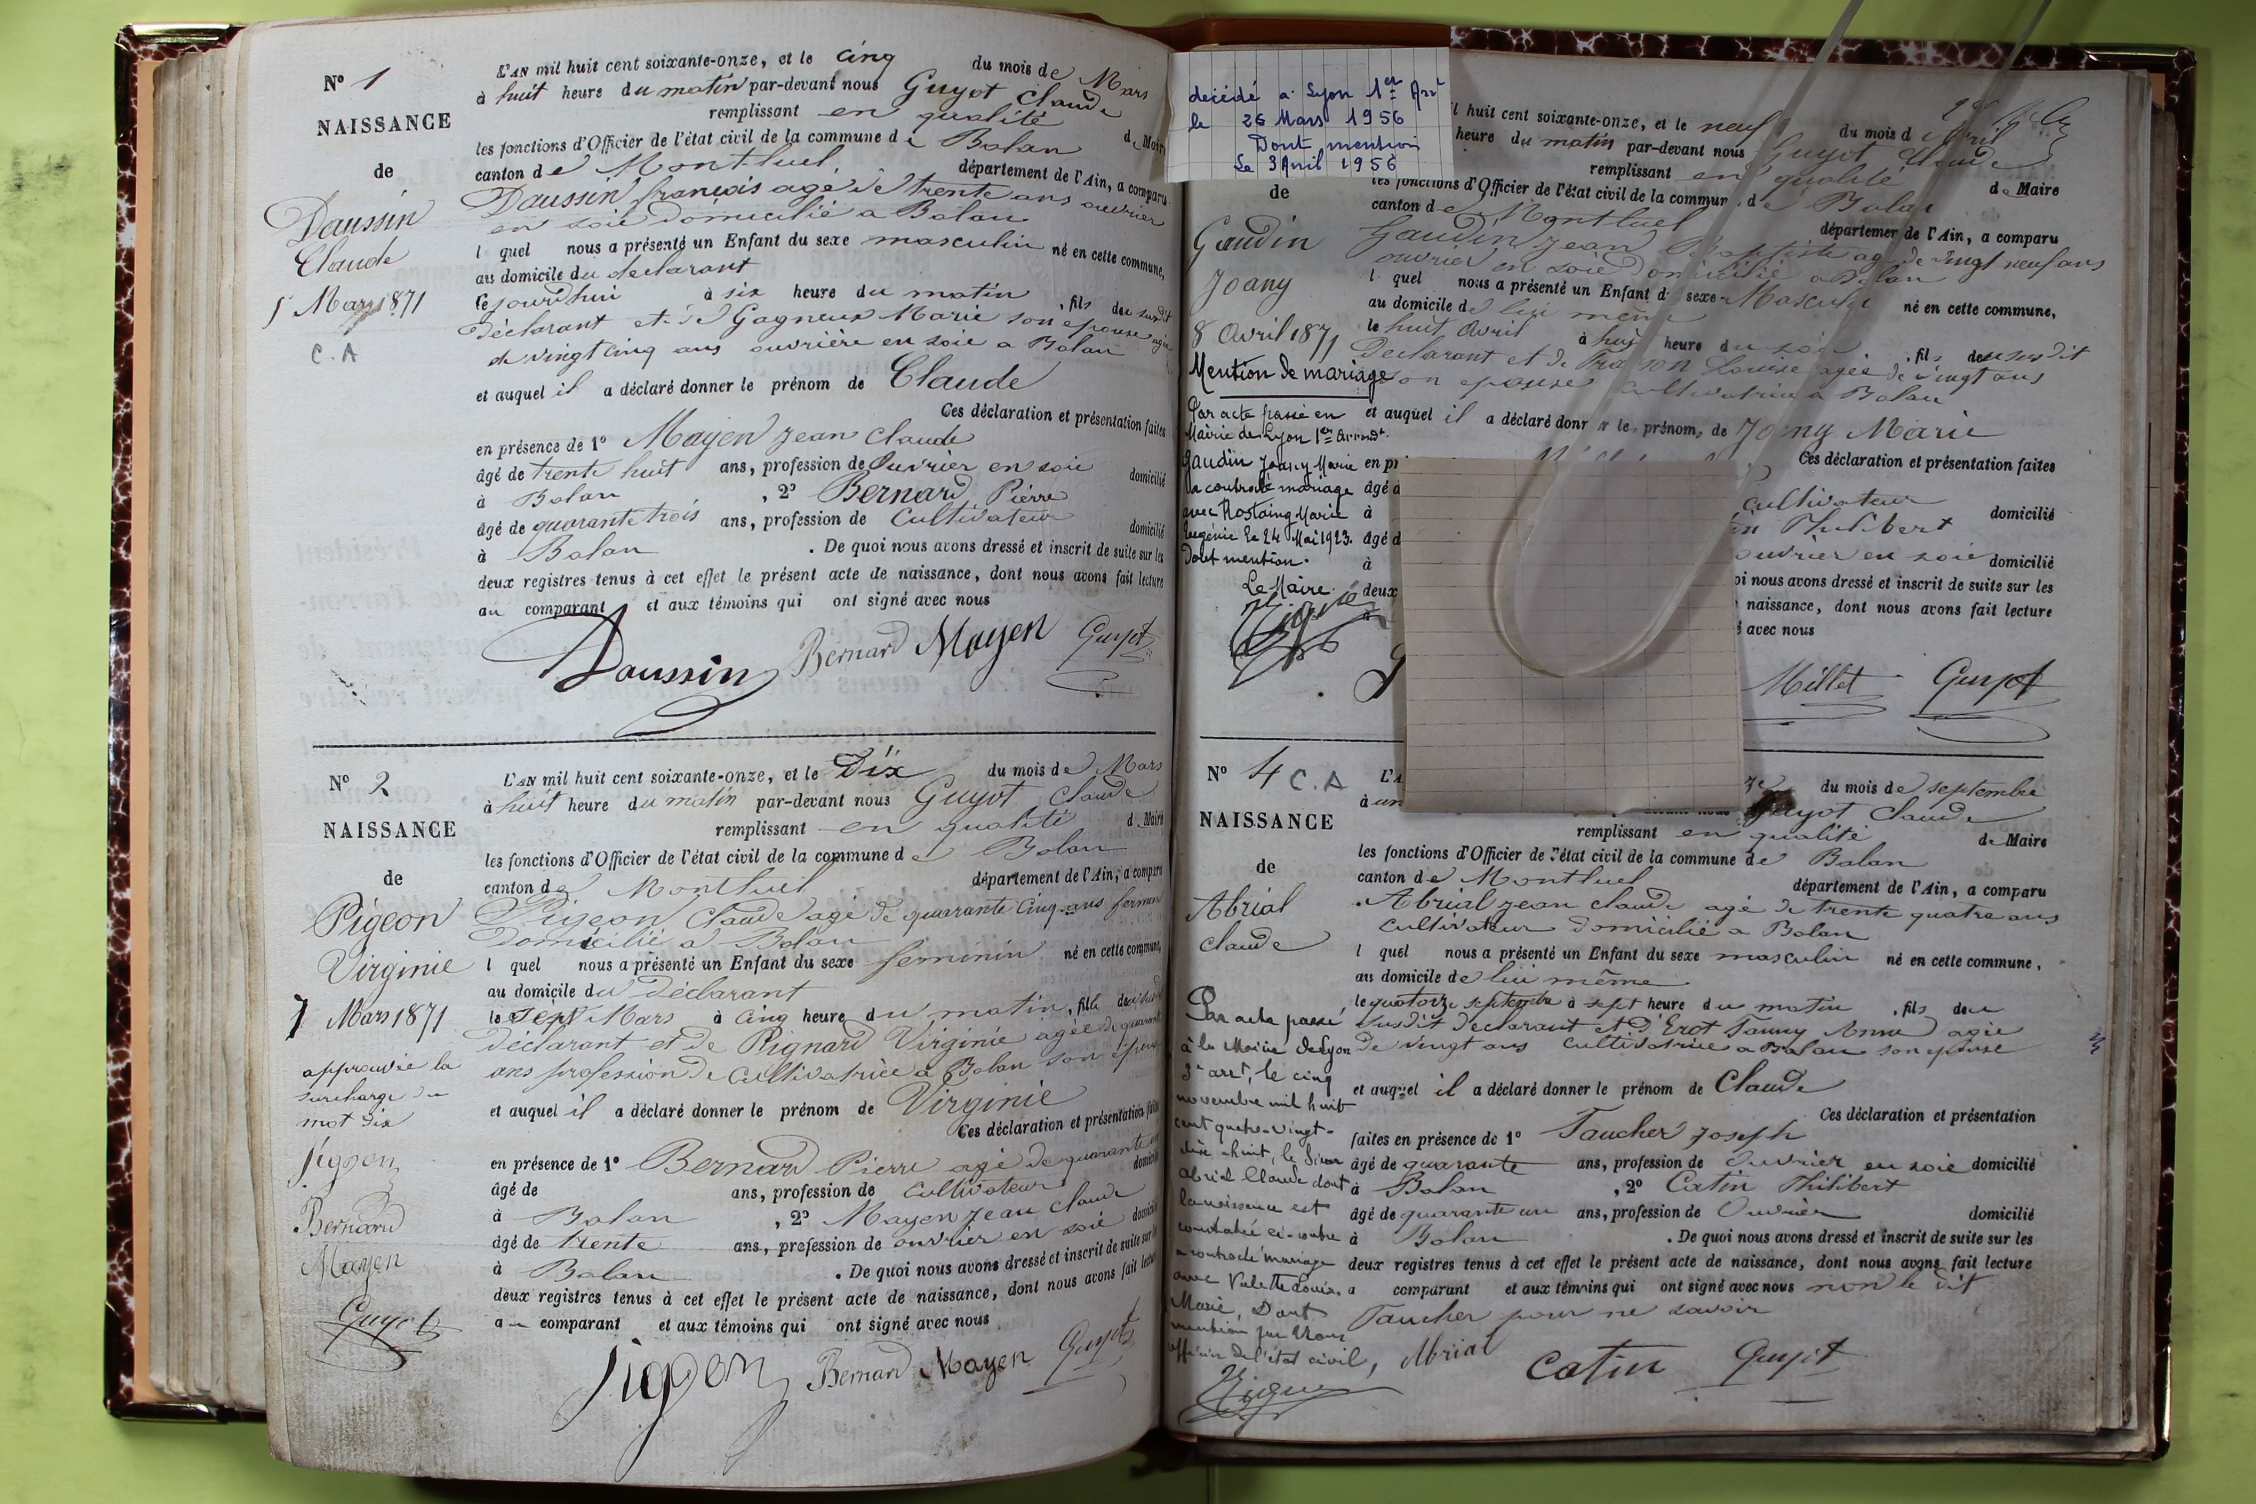 N° 1
NAISSANCE
de
Daussin
Claude
5 Mars 1871
C. A
L'AN mil huit cent soixante-onze, et le cinq du mois de Mars
à huit heure du matin par-devant nous Guyot Claude
remplissant en qualité de Maire
les fonctions d'Officier de l'état civil de la commune de Balan
canton de Montluel département de l'Ain, a comparu
Daussin françois agé de trente ans ouvrier
en soie domicilié a Balan
l quel nous a présenté un Enfant du sexe masculin né en cette commune,
au domicile du declarant
le jourd'hui à six heure du matin, fils du susdit
déclarant et de Gagneux Marie son epouse agée
de vingt cinq ans ouvrière en soie a Balan
et auquel il a déclaré donner le prénom de Claude
Ces déclaration et présentation faites
en présence de 1° Mayen jean claude
âgé de trente huit ans, profession de Ouvrier en soie domicilié
à Balan, 2° Bernard Pierre
âgé de quarante trois ans, profession de Cultivateur domicilié
à Balan. De quoi nous avons dressé et inscrit de suite sur les
deux registres tenus à cet effet le présent acte de naissance, dont nous avons fait lecture
au comparant et aux témoins qui ont signé avec nous
Daussin Bernard Mayen Guyot
N° 2
NAISSANCE
de
Pigeon
Virginie
7 Mars 1871
approuvée la
surcharge du
mot dix
Pigeon
Bernard
Mayen
Guyot
L'AN mil huit cent soixante-onze, et le Dix du mois de Mars
à huit heure du matin par-devant nous Guyot Claude
remplissant en qualité d Maire
les fonctions d'Officier de l'état civil de la commune de Balan
canton de Montluel département de l'Ain, a comparu
Pigeon Claude agé de quarante cinq ans fermier
Domicilié a Balan
l quel nous a présenté un Enfant du sexe feminin né en cette commune,
au domicile du Déclarant
le sept Mars à cinq heure du matin, fille du susdit
Déclarant et de Pignard Virginie agée de quarante
ans profession de cultivatrice a Balan son épouse
et auquel il a déclaré donner le prénom de Virginie
Ces déclaration et présentation faites
en présence de 1° Bernard Pierre agé de quarante
âgé de ans, profession de cultivateur domicilié
à Balan, 2° Mayen jean claude
âgé de trente ans, profession de ouvrier en soie domicilié
à Balan. De quoi nous avons dressé et inscrit de suite sur les
deux registres tenus à cet effet le présent acte de naissance, dont nous avons fait lecture
au comparant et aux témoins qui ont signé avec nous
Pigeon Bernard Mayen Guyot
decédé a Lyon 1er Arrt
le 26 Mars 1956
Dont mention
Le 3 Avril 1956
de
Gaudin
Joany
8 Avril 1871
Mention de mariage
Par acte passé en
Mairie de Lyon 1er Arrondt.
Gaudin Joany Marie
a contracté mariage
avec Rostaing Marie
Eugénie le 24 Mai 1923.
Dont mention.
Le Maire.
l huit cent soixante-onze, et le neuf du mois d Avril
heure du matin par-devant nous Guyot Claude
remplissant en qualité de Maire
les fonctions d'Officier de l'état civil de la commune de Balan
canton de Montluel département de l'Ain, a comparu
Gaudin Jean Baptiste agé de vingt neuf ans
ouvrier en soie domicilié a Balan
l quel nous a présenté un Enfant du sexe Masculin né en cette commune,
au domicile de lui même
le huit Avril à huit heure du soir, fils du susdit
Déclarant et de Louise agée de vingt ans
son epouse cultivatrice a Balan
et auquel il a déclaré donner le prénom, de Joany Marie
Ces déclaration et présentation faites
en pr
âgé d cultivateur domicilié
à Philibert
âgé d ouvrier en soie domicilié
à oi nous avons dressé et inscrit de suite sur les
deux naissance, dont nous avons fait lecture
a avec nous
Millet Guyot
N° 4 C. A
NAISSANCE
de
Abrial
claude
Par acte passé
à la Mairie de Lyon
3e arrt, le cinq
novembre mil huit
cent quatre-vingt-
dix-huit, le Sieur
Abrial Claude dont
la naissance est
constatée ci-contre
a contracté mariage
avec Valette Louise
Marie, Dont
mention par Nous
officier de l'état civil,
L'A du mois de septembre
à un Guyot Claude
remplissant en qualité de Maire
les fonctions d'Officier de l'état civil de la commune de Balan
canton de Montluel département de l'Ain, a comparu
Abrial jean claude agé de trente quatre ans
cultivateur domicilié a Balan
l quel nous a présenté un Enfant du sexe masculin né en cette commune,
au domicile de lui même
le quatorze septembre à sept heure du matin, fils du
susdit declarant et d'Erot Fanny Anne agée
de vingt ans cultivatrice a Balan son epouse
et auquel il a déclaré donner le prénom de Claude
Ces déclaration et présentation
faites en présence de 1° Faucher Joseph
âgé de quarante ans, profession de Ouvrier en soie domicilié
à Balan, 2° Catin Philibert
âgé de quarante un ans, profession de Ouvrier domicilié
à Balan. De quoi nous avons dressé et inscrit de suite sur les
deux registres tenus à cet effet le présent acte de naissance, dont nous avons fait lecture
a comparant et aux témoins qui ont signé avec nous non le dit
Faucher pour ne savoir
Abrial Catin Guyot